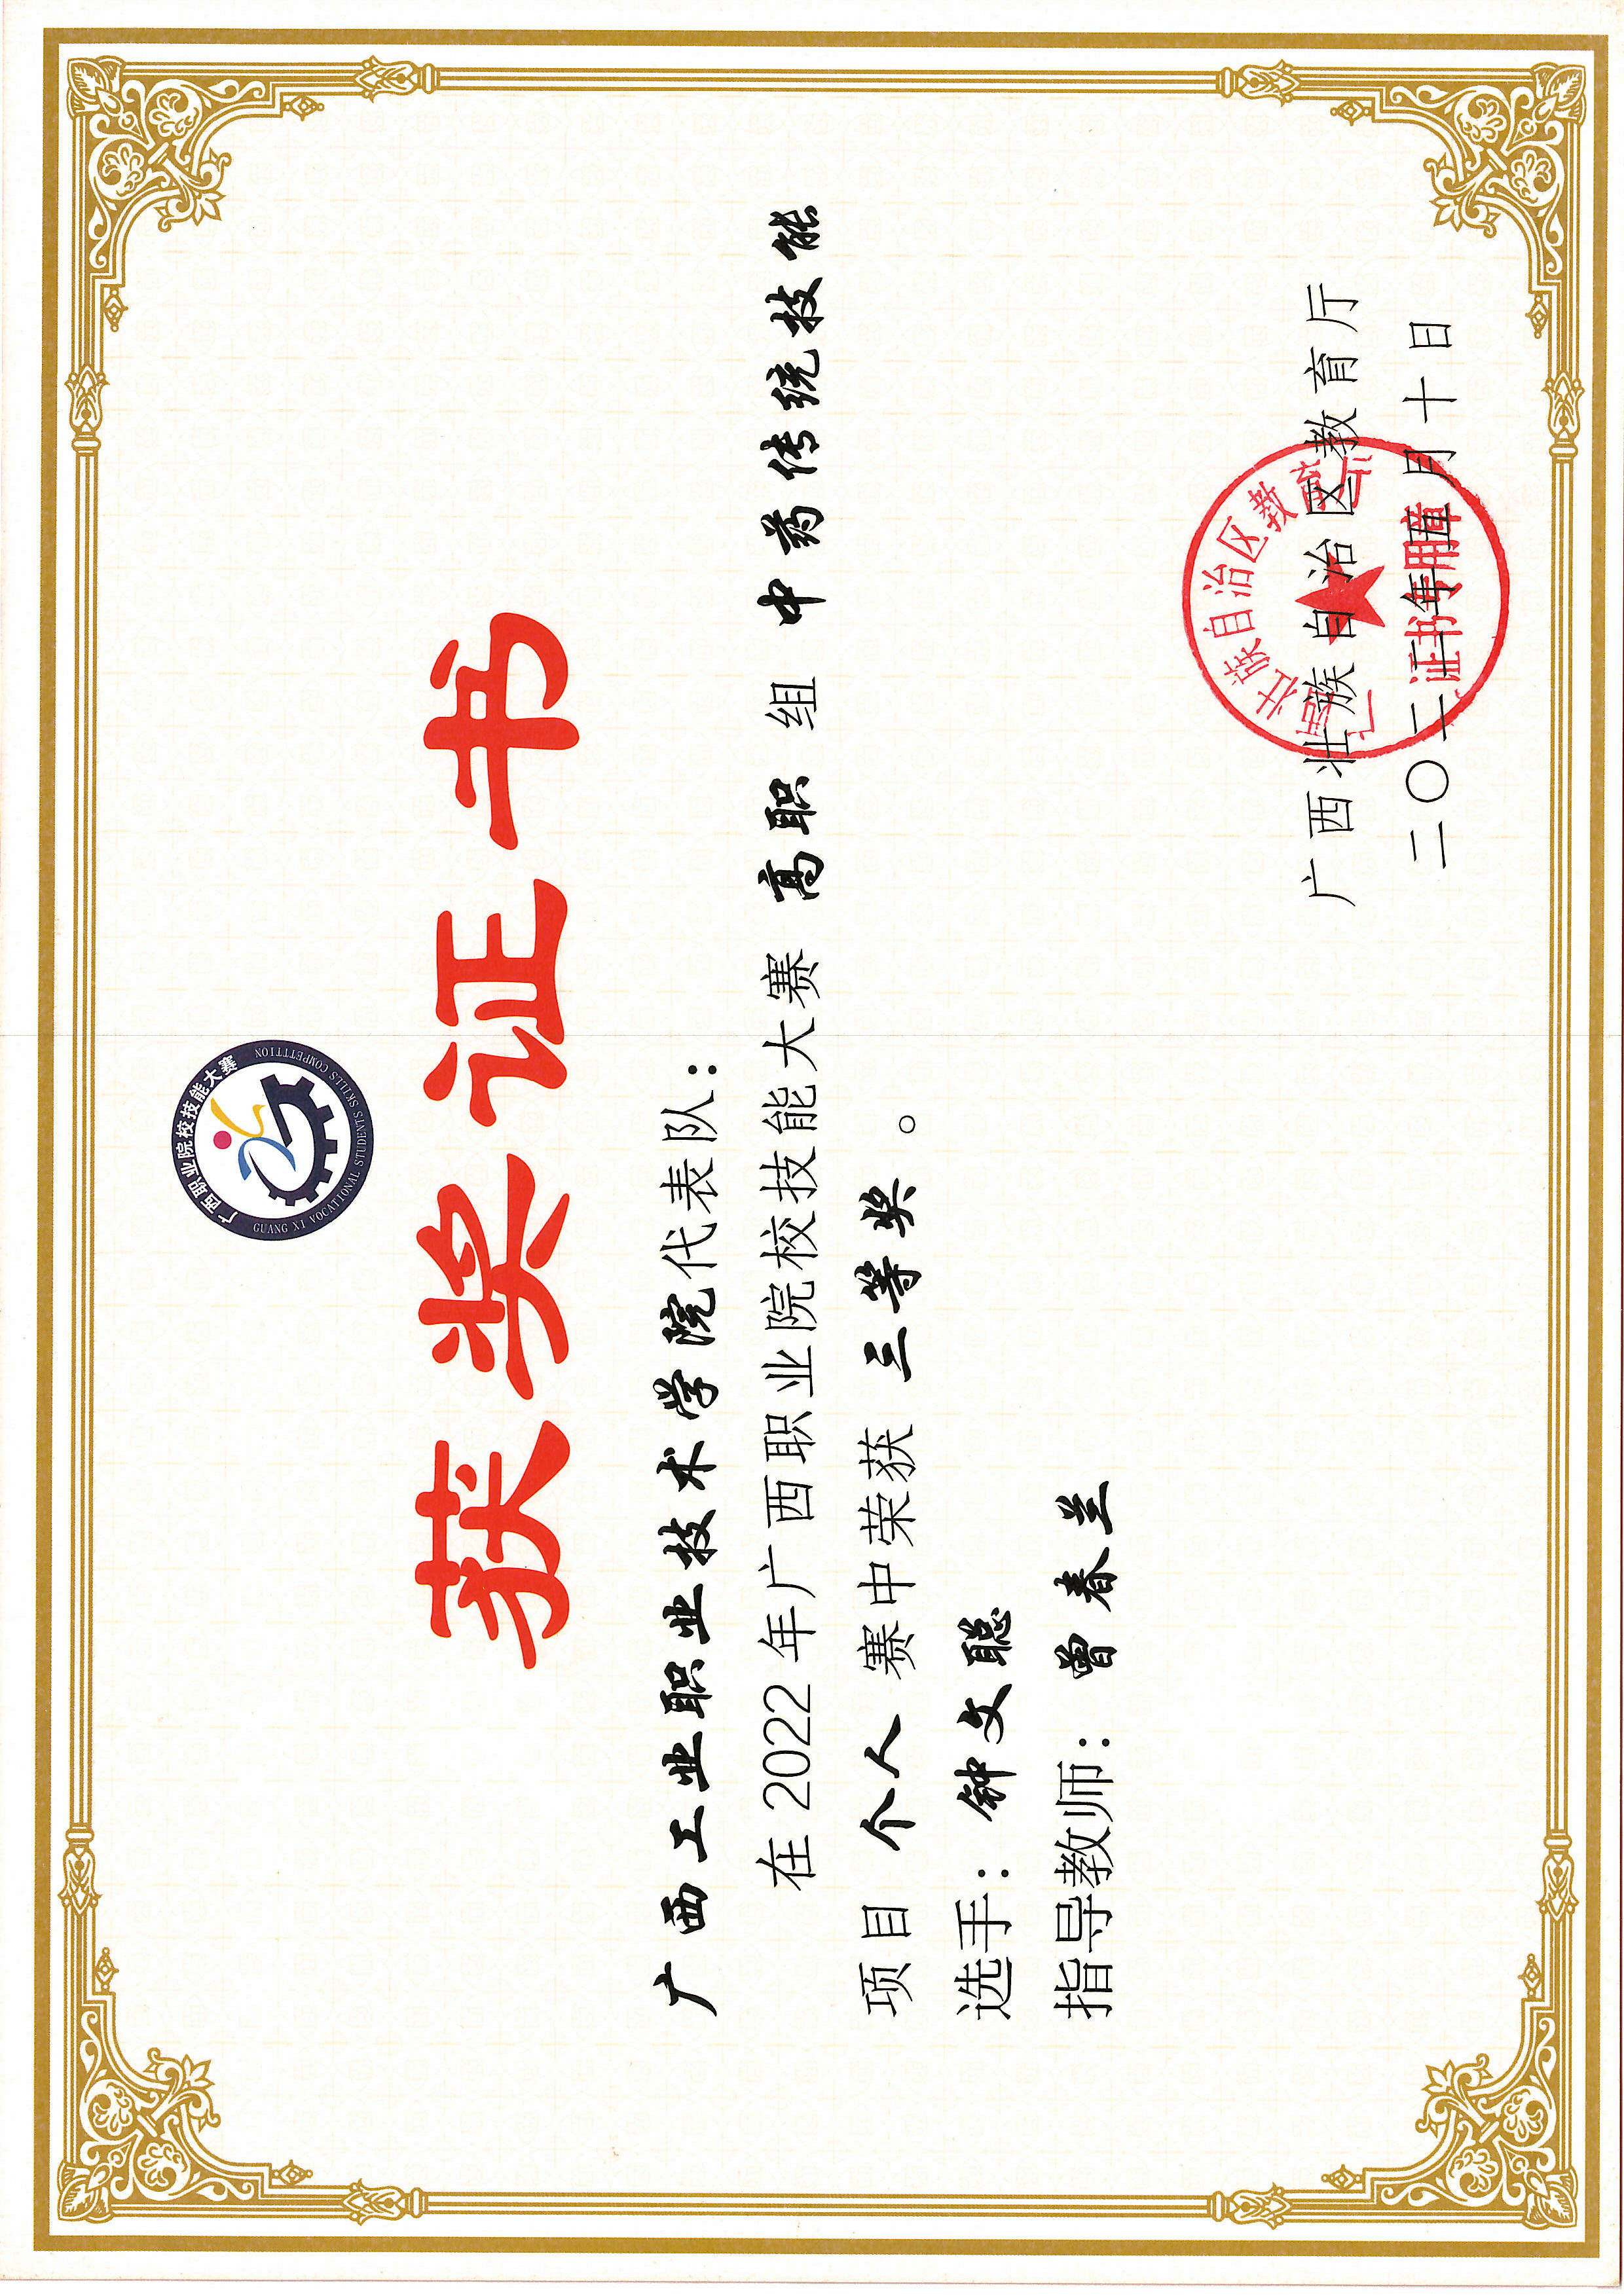 广西职业院校技能大赛
GUANG XI VOCATIONAL STUDENTS SKILLS COMPETITION
获奖证书
广西工业职业技术学院代表队：
在 2022 年广西职业院校技能大赛 高职 组 中药传统技能
项目 个人 赛中荣获 三等奖 。
选手：钟文聪
指导教师：曾春兰
广西壮族自治区教育厅
二〇二二年 月十日
广西壮族自治区教育厅
证书专用章